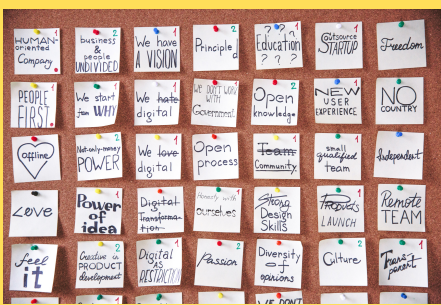 HUMAN-
oriented
Company
1
business
&
people
UNDIVIDED
2
We have
A VISION
1
Principled
2
? ? ?
Education
? ? ?
1
Outsource
STARTUP
1
Freedom
PEOPLE
FIRST.
1
We start
from WHY
2
We hate
digital
1
WE DON'T WORK
WITH
Government
1
Open
knowledge
2
NEW
USER
EXPERIENCE
1
NO
COUNTRY
offline
Not-only-money
POWER
2
We love
digital
1
Open
process
1
Team
Community
1
small
qualified
team
1
Independent
Love
Power
of
idea
1
Digital
Transforma-
tion
1
Honesty with
ourselves
1
Strong
Design
Skills
1
Products
LAUNCH
1
Remote
TEAM
feel
it
Creative in
PRODUCT
development
2
Digital
AS
RESTRICTION
1
Passion
2
Diversity
of
opinions
1
Culture
2
Trans-
parent
1
WE DON'T